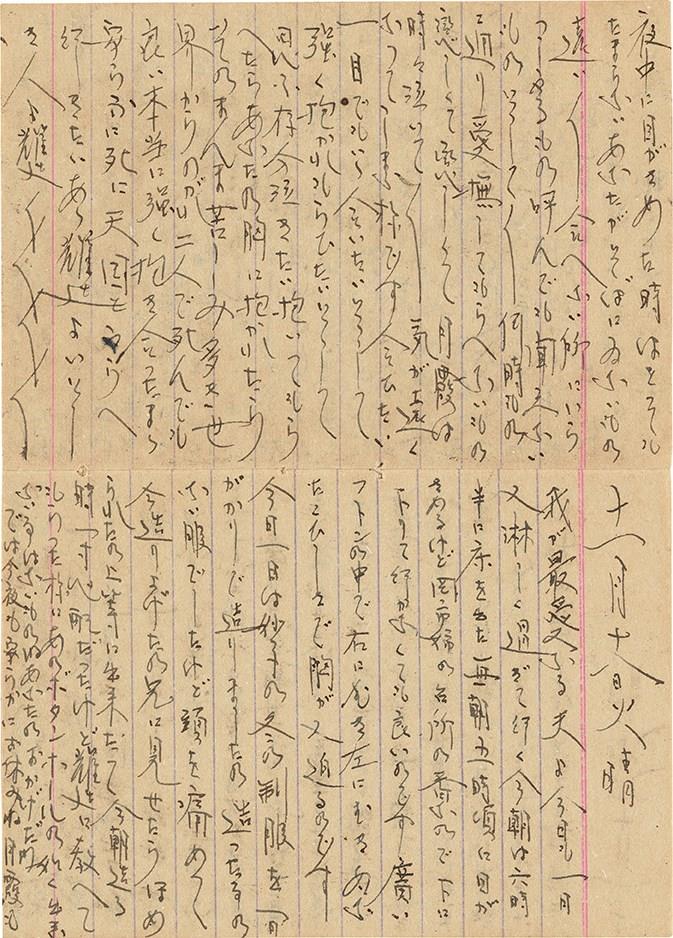 十一月十八日火 晴
我が最愛なる夫よ今日も一日
又淋しく過ぎて行く今朝は六時
半に床を出た毎朝五時頃に目が
さめるけど 姉の台所の番なので下に
下りて行かなくても良いのです廣い
フトンの中で右にむき左にむきあな
たこひしさで胸が又迫るのです
今日一日は妙子の冬の制服を一日
がかりで造りましたの造つた事の
ない服でしたけど頭を痛めて
今造り上げたの兄に見せたらほめ
られたの上等に出来たつて今朝造る
時一寸心配だつたけど に教へて
もらつた様にあのボタンホールの よく出来
あなたのおかげだ
では今夜も安らかにお休みね月霞も
夜中に目がさめた時はとても
たまらないあなたがそばにゐないもの
遠い〱会へない所にいら
つしやるもの呼んでも聞えない
もの 何時もの
通り愛撫してもらへないもの
戀しくて戀しくて月霞は
時々泣いて〱気が遠く
なつてしまふ様です会ひたい
一目でもいゝ会いたいそうして
強く抱かれもらひたいそうして
思ふ存分泣きたい抱いてもら
へたらあなたの胸に抱かりたら
そのまんま苦しみ多き世
界からのがれ二人で死んでも
良い本当に強く抱き合つたまゝ
安らかに死に天国
行きたいあゝ よいとし
き人よ